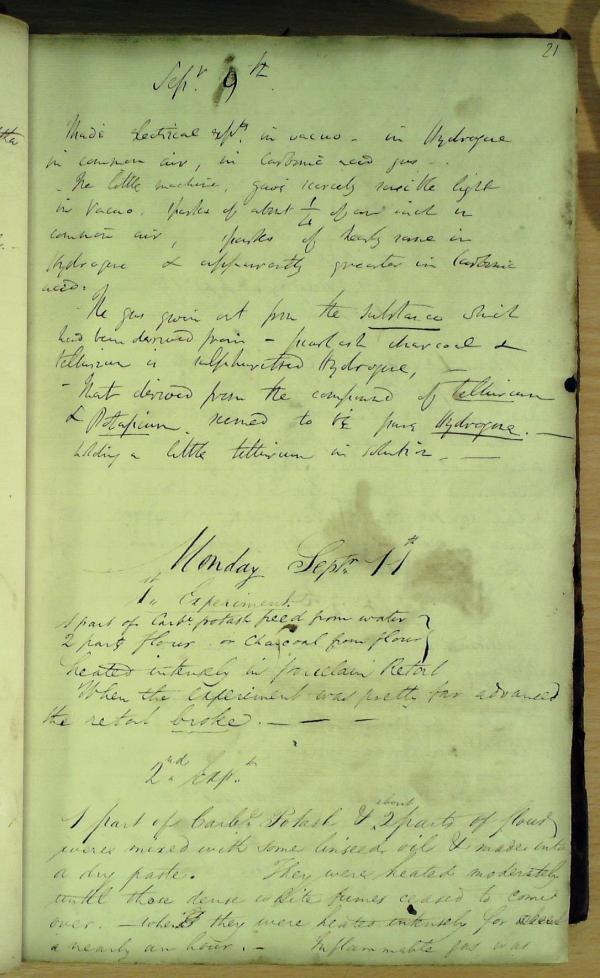 21
Sepr. 9th.
Made Electrical expts. in vacuo - in Hydrogene
in common air, in Carbonic acid gas -
- The little machine, gave scarcely sensible light
in Vacuo. Sparks of about 1/4 of an inch in
common air, sparks of nearly same in
Hydrogene & apparently greater in Carbonic
acid.
The gas given out from the substance which
had been derived from - pearl ash charcoal &
tellurium is sulphuretted Hydrogene, -
- That derived from the compound of Tellurium
& Potassium seemed to be pure Hydrogene. -
holding a little tellurium in solution. -
Monday Septr. 11th
1st. Experiment.
1 part of Carbe. potash freed from water
2 parts flour or Charcoal from flour
heated intensely in porcelain Retort
When the experiment was pretty far advanced
the retort broke. - - -
2nd. Expt.
1 part of Carbe. Potash & about 2 parts of flour
were mixed with some linseed oil & made into
a dry paste. They were heated moderately
until those dense white fumes ceased to come
over. - when they were heated intensely for
nearly an hour. - Inflammable gas was